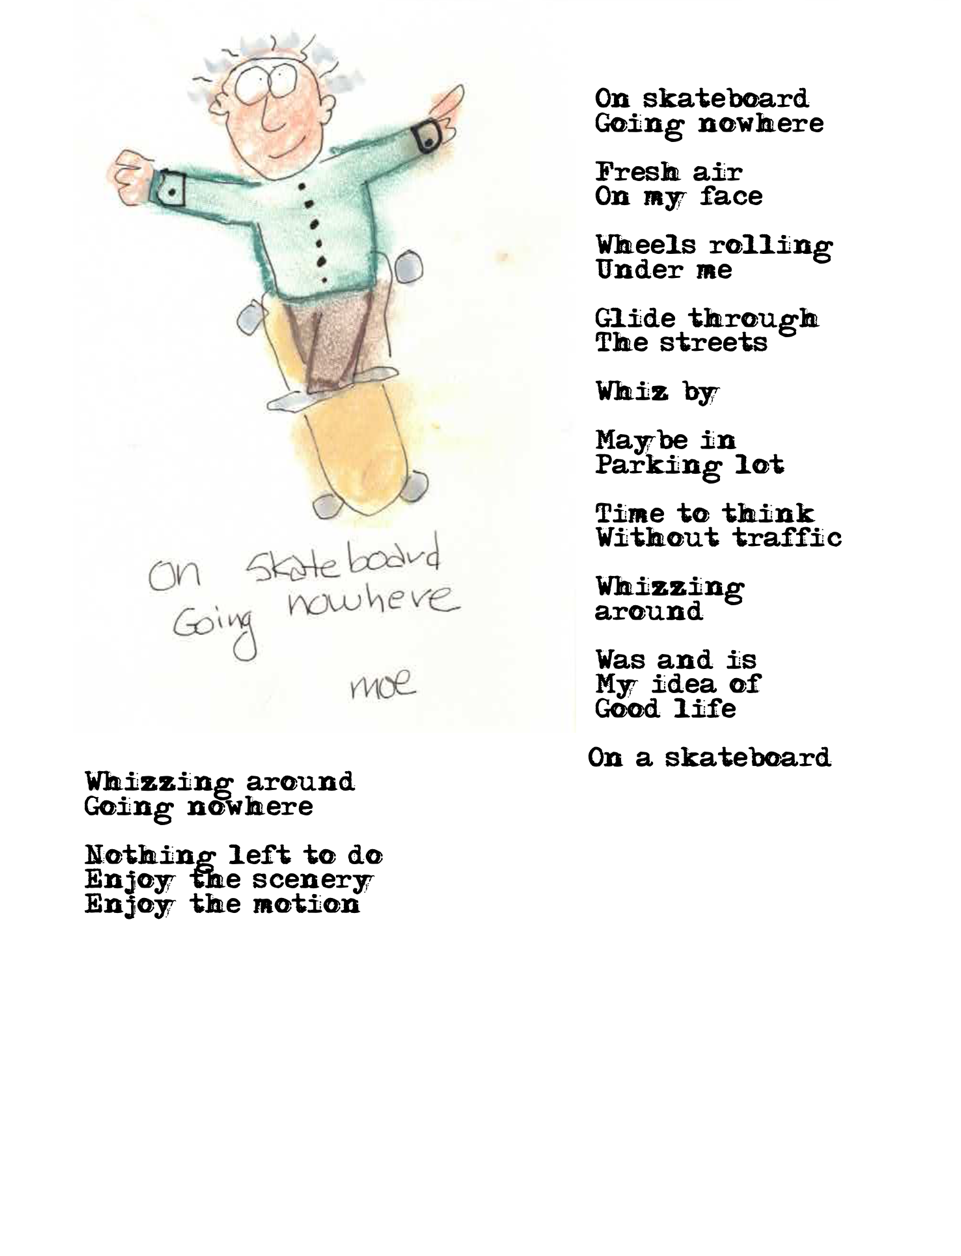 On skateboard
Going nowhere
moe
Whizzing around
Going nowhere
Nothing left to do
Enjoy the scenery
Enjoy the motion
On skateboard
Going nowhere
Fresh air
On my face
Wheels rolling
Under me
Glide through
The streets
Whiz by
Maybe in
Parking lot
Time to think
Without traffic
Whizzing
around
Was and is
My idea of
Good life
On a skateboard